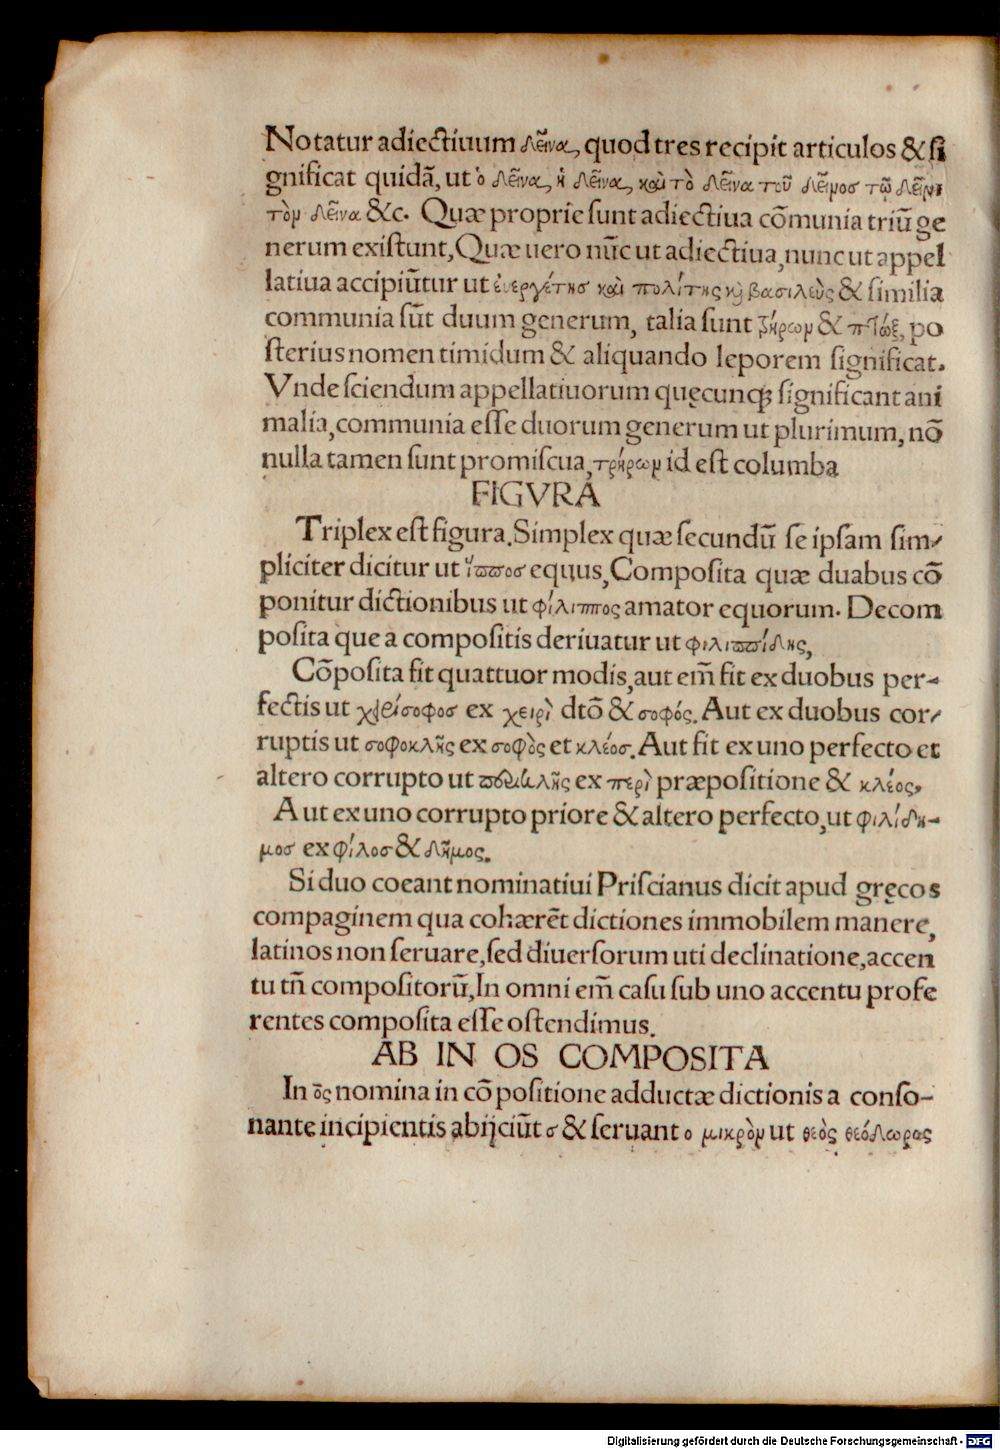 Notatur adiectiuum δεῖνα, quod tres recipit articulos & ſi
gnificat quidã, ut ὁ δεῖνα, ἡ δεῖνα, καὶ τὸ δεῖνα τοῦ δεῖνοσ τῶ δεῖνι
τὸν δεῖνα &c. Quæ proprie ſunt adiectiua cõmunia triũ ge
nerum exiſtunt, Quæ uero nũc ut adiectiua, nunc ut appel
latiua accipiũtur ut ἐυεργέτησ καὶ πολίτης κὶ βασιλεὺς & ſimilia
communia ſũt duum generum, talia ſunt & πτὼξ, po
ſterius nomen timidum & aliquando leporem ſignificat.
Vnde ſciendum appellatiuorum quęcunqꝫ ſignificant ani
malia, communia eſſe duorum generum ut plurimum, nõ
nulla tamen ſunt promiſcua, τρήρων id eſt columba
FIGVRA
Triplex eſt figura. Simplex quæ ſecundũ ſe ipſam sim/
pliciter dicitur ut ἵππος equus, Compoſita quæ duabus cõ
ponitur dictionibus ut φίλιππος amator equorum. Decom
poſita que a compoſitis deriuatur ut φιλιππίδης,
Cõpoſita fit quattuor modis, aut em̃ fit ex duobus per-
fectis ut χειρίσοφοσ ex χειρὶ dtõ & σοφός. Aut ex duobus cor/
ruptis ut σοφοκλῆς ex σοφὸς et κλέοσ. Aut fit ex uno perfecto et
altero corrupto ut περικλῆς ex περὶ præpoſitione & κλέος,
Aut ex uno corrupto priore & altero perfecto, ut φιλίδη-
μοσ ex φίλοσ & δῆμος.
Si duo coeant nominatiui Priſcianus dicit apud gręcos
compaginem qua cohærẽt dictiones immobilem manere,
latinos non ſeruare, ſed diuerſorum uti declinatione, accen
tu tñ compoſitorũ, In omni em̃ caſu ſub uno accentu profe
rentes compoſita eſſe oſtendimus.
AB IN OS COMPOSITA
In ος nomina in cõpoſitione adductæ dictionis a conſo-
nante incipientis abijciũt σ & ſeruant ο μικρὸν ut θεὸς θεόδωρας
Digitalisierung gefördert durch die Deutsche Forschungsgemeinschaft - DFG